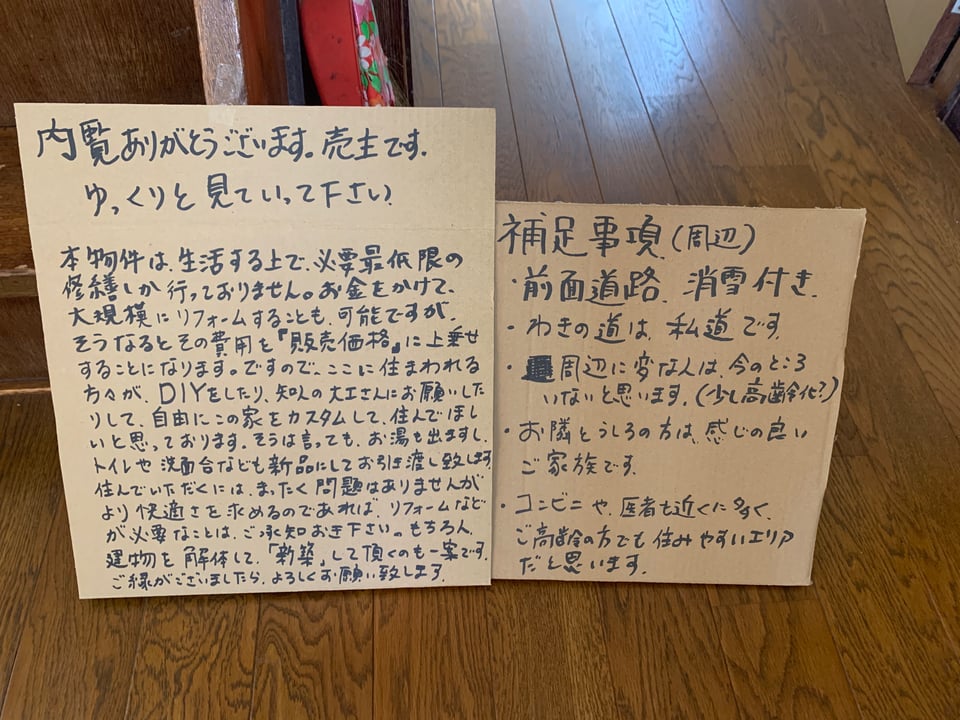 内覧ありがとうございます。売主です.
ゆっくりと見ていって下さい
本物件は、生活する上で、必要最低限の
修繕しか行っておりません。お金をかけて、
大規模にリフォームすることも、可能ですが、
そうなるとその費用を『販売価格』に上乗せ
することになります。ですので、ここに住まわれる
方々が、DIYをしたり、知人の大工さんにお願いした
りして、自由にこの家をカスタムして、住んでほし
いと思っております。そうは言っても、お湯も出ますし、
トイレや洗面台なども新品にしてお引き渡し致します
住んでいただくには、まったく問題はありませんが
より快適さを求めるのであれば、リフォームなど
が必要なことは、ご承知おき下さい。もちろん、
建物を解体して、「新築」して頂くのも一案です。
ご縁がございましたら、よろしくお願い致します
補足事項（周辺）
・前面道路、消雪付き.
・わきの道は、私道です.
・周辺に変な人は、今のところ
いないと思います.（少し高齢化?）
・お隣とうしろの方は、感じの良い
ご家族です.
・コンビニや、医者も近くに多く、
ご高齢の方でも住みやすいエリア
だと思います.